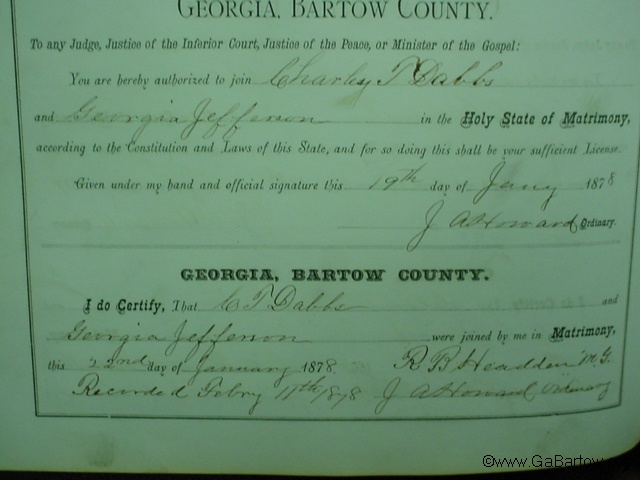 GEORGIA, BARTOW COUNTY.
To any Judge, Justice of the Inferior Court, Justice of the Peace, or Minister of the Gospel:
You are hereby authorized to join Charley T Dabbs
and Georgia Jefferson in the Holy State of Matrimony,
according to the Constitution and Laws of this State, and for so doing this shall be your sufficient License.
Given under my hand and official signature this 19th day of Jany 1878
J A Howard Ordinary.
GEORGIA, BARTOW COUNTY.
I do Certify, That C T Dabbs and
Georgia Jefferson were joined by me in Matrimony,
this 22nd day of January 1878. R B Headden M.G.
Recorded Febry 11th 1878 J A Howard Ordinary
©www.GaBartow.